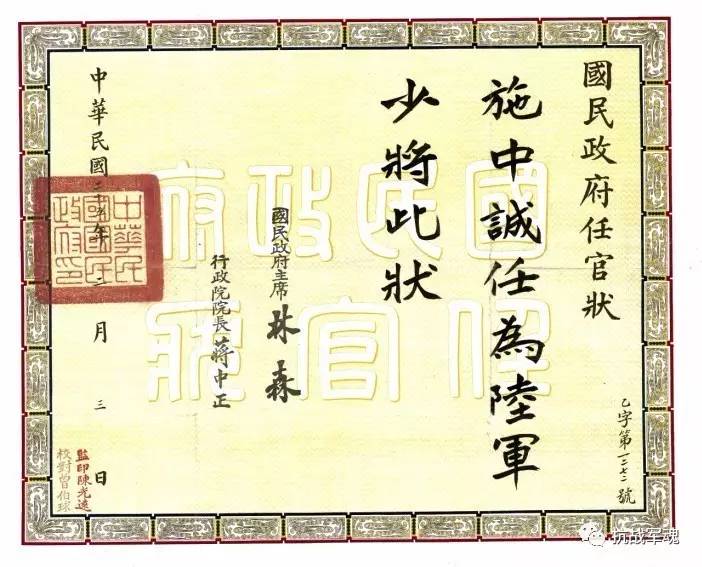 國民政府任官狀
乙字第一二七二號
施中誠任為陸軍
少將此狀
國民政府主席 林森
行政院院長 蔣中正
中華民國年二月三日
監印陳光遠
校對曾伯球
中華民國國民政府印
國民政府
任官狀
抗战军魂